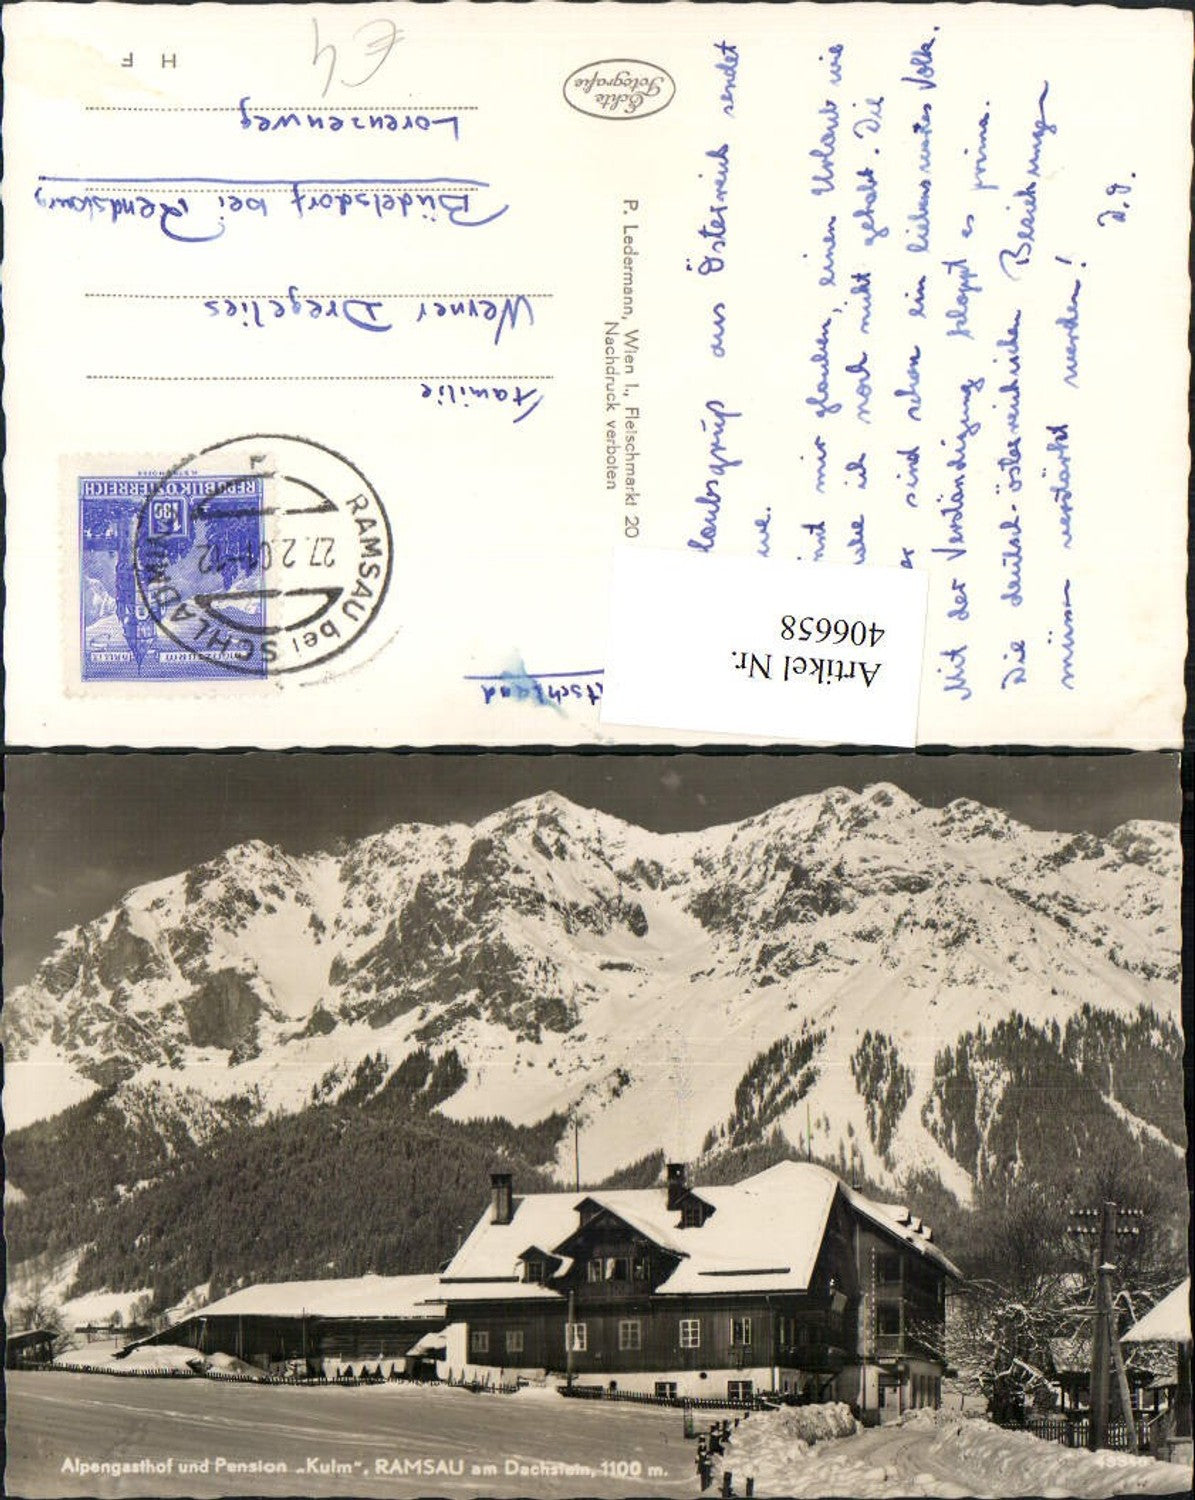 laubsgrüße aus Österreich sendet
mir glauben, einen Urlaub wie
ich noch nicht gehabt. Die
sind schon ein liebenswertes Volk.
Mit der Verständigung klappt es prima.
Die deutsch-österreichischen Beziehungen
müssen verstärkt werden!
Echte
Fotografie
P. Ledermann, Wien I., Fleischmarkt 20
Nachdruck verboten
REPUBLIK ÖSTERREICH
1.80
RAMSAU bei SCHLADMING
27.2.
Familie
Werner Dregelies
Büdelsdorf bei Rendsburg
Lorenzenweg
tschland
H F
€ 4
Artikel Nr.
406658
Alpengasthof und Pension „Kulm", RAMSAU am Dachstein, 1100 m.